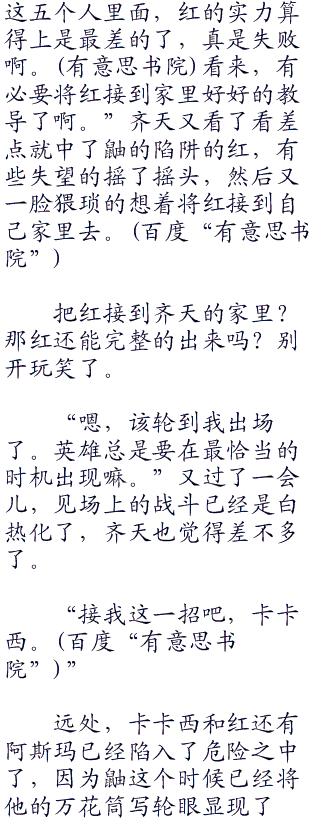 这五个人里面，红的实力算
得上是最差的了，真是失败
啊。(有意思书院)看来，有
必要将红接到家里好好的教
导了啊。”齐天又看了看差
点就中了鼬的陷阱的红，有
些失望的摇了摇头，然后又
一脸猥琐的想着将红接到自
己家里去。(百度“有意思书
院”)
把红接到齐天的家里？
那红还能完整的出来吗？别
开玩笑了。
“嗯，该轮到我出场
了。英雄总是要在最恰当的
时机出现嘛。”又过了一会
儿，见场上的战斗已经是白
热化了，齐天也觉得差不多
了。
“接我这一招吧，卡卡
西。(百度“有意思书
院”)”
远处，卡卡西和红还有
阿斯玛已经陷入了危险之中
了，因为鼬这个时候已经将
他的万花筒写轮眼显现了